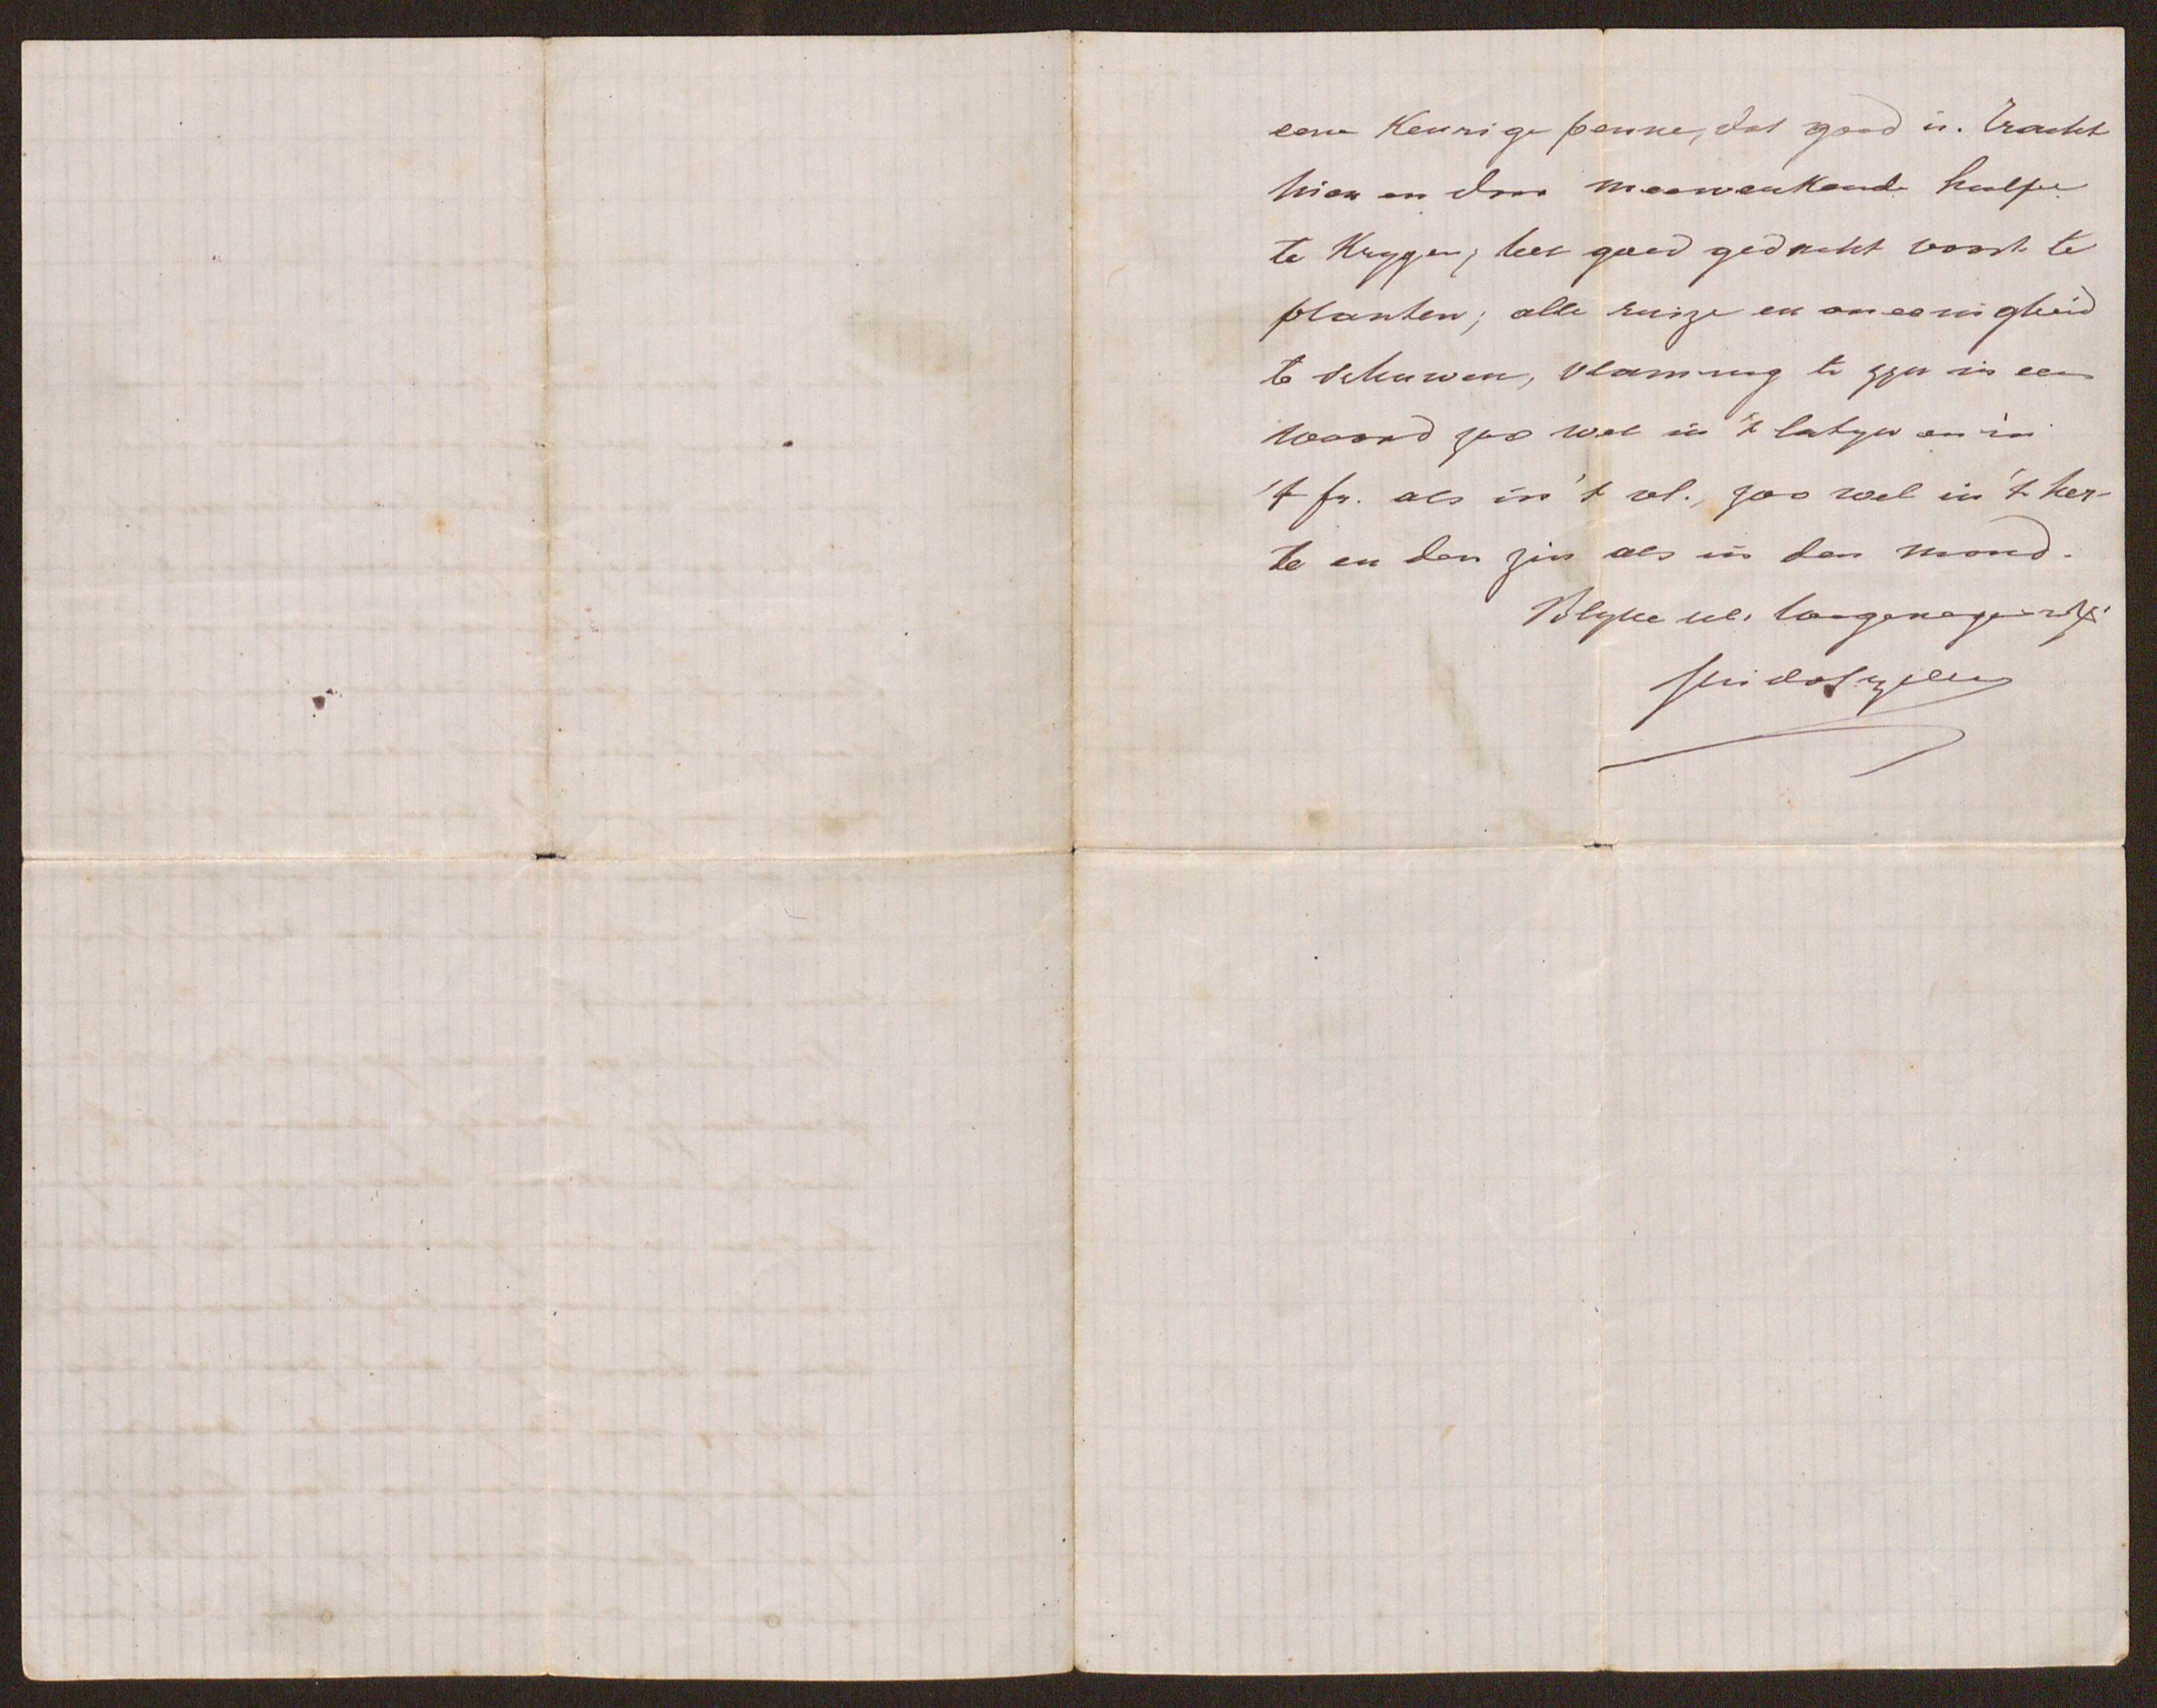 eene keurige penne, dat goed is. Tracht
hier en daar meewerkende hulpe
te krygen; het goed gedacht voort te
planten; alle ruize en oneenigheid
te schuwen, vlaming te zyn in een
woord zoo wel in 't latyn en in
't fr. als in 't vl., zoo wel in 't her-
te en den zin als in den mond.
Blyve ul. toegenegen
Guido Gezelle